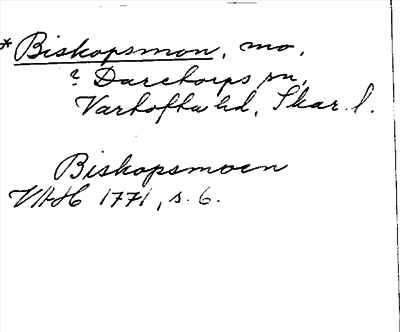 *Biskopsmon, mo,
? Daretorps sn,
Vartofta hd, Skar. l.
Biskopsmoen
VHH 1771, s. 6.